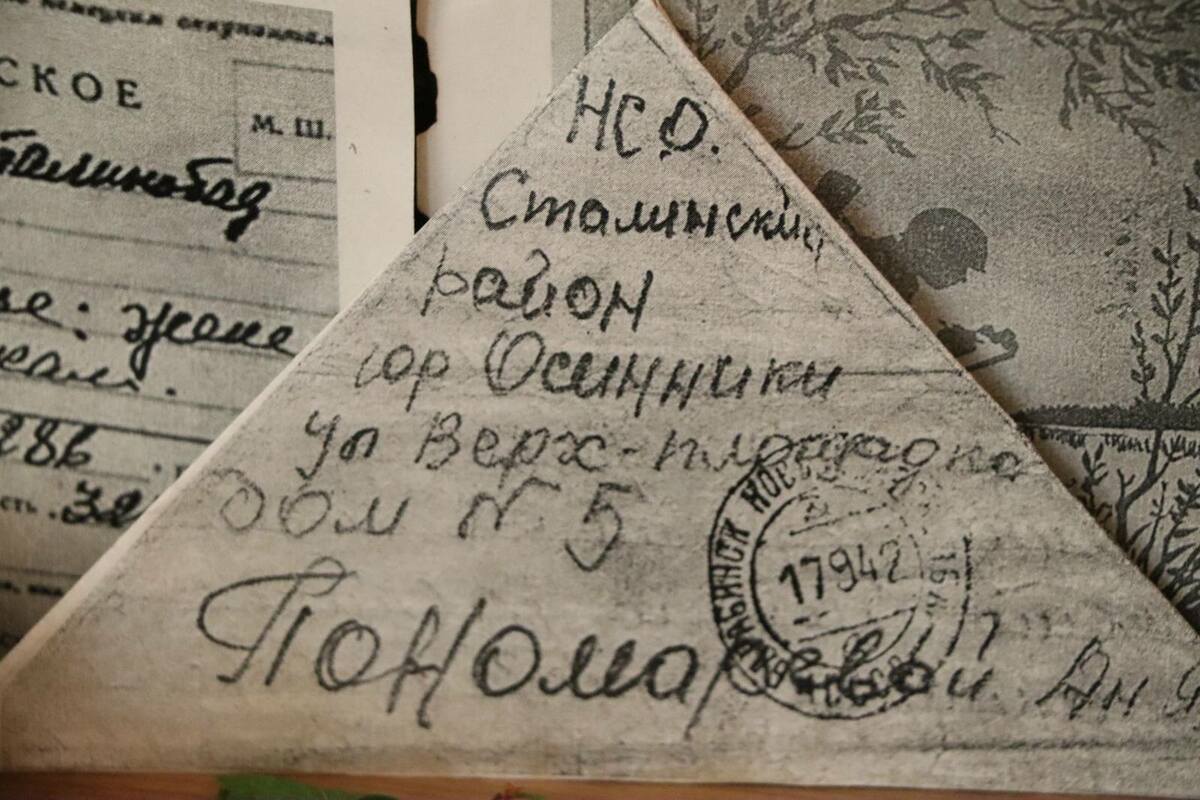 СКОЕ
М. Ш.
талинобад
: жене
286
сть . 32
НСО.
Сталинский
район
гор Осинники
ул Верх-площадка
дом N. 5
Пономаревой Ан Я
17 9 42